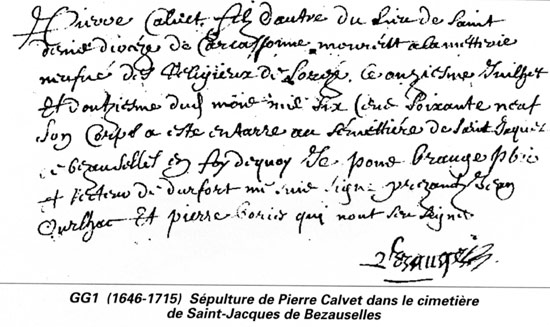 Pierre Calvet, filz d'autre du lieu de Saint
denis diocéze de Carcassonne mourust a la mettérie
neufue des Religieux de Soreze, le onziesme Juilhet
Et donziesme dud mois mil six Cens soixante neuf
son Corps a esté entarre au semettiére de saint Jaques
de bezauselles en foy de quoy Je pons brauge pbre
et recteur de durfort me suis signe prezans Jean
Ourlhac Et pierre bories qui nont seu signe
GG1 (1646-1715) Sépulture de Pierre Calvet dans le cimetière
de Saint-Jacques de Bezauselles